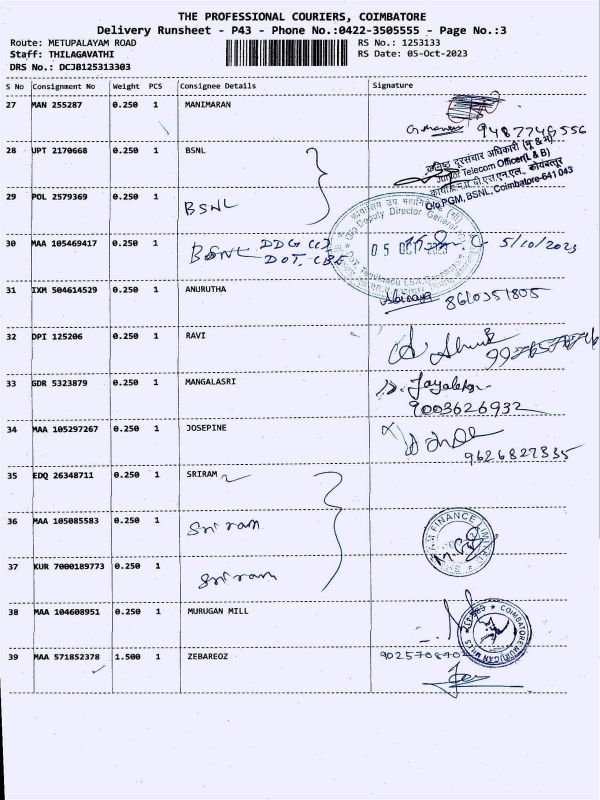 THE PROFESSIONAL COURIERS, COIMBATORE
Delivery Runsheet - P43 - Phone No.:0422-3505555 - Page No.:3
Route: METUPALAYAM ROAD RS No.: 1253133
Staff: THILAGAVATHI RS Date: 05-Oct-2023
DRS No.: DCJB125313303
S No Consignment No Weight PCS Consignee Details Signature
27 MAN 255287 0.250 1 MANIMARAN
9487746556
28 UPT 2170668 0.250 1 BSNL
कनिष्ठ दूरसंचार अधिकारी
Junior Telecom Officer(L & B)
O/o.PGM, BSNL, Coimbatore-641 043
29 POL 2579369 0.250 1 BSNL
30 MAA 105469417 0.250 1 BSNL DDG (C) DOT, CBE
O/o Deputy Director General
05 OCT 2023 5/10/2023
31 IXM 504614529 0.250 1 ANURUTHA
8610351805
32 DPI 125206 0.250 1 RAVI
33 GDR 5323879 0.250 1 MANGALASRI
9003626932
34 MAA 105297267 0.250 1 JOSEPINE
9626827835
35 EDQ 26348711 0.250 1 SRIRAM
36 MAA 105085583 0.250 1 Sri ram
FINANCE LIMITED
37 KUR 7000189773 0.250 1 Sri ram
38 MAA 104608951 0.250 1 MURUGAN MILL
COIMBATORE MURUGAN MILLS
39 MAA 571852378 1.500 1 ZEBAREOZ